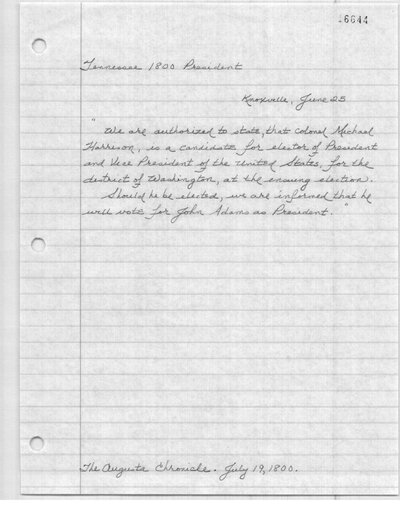 16644
Tennessee 1800 President
Knoxville, June 25
"We are authorized to state, that Colonel Michael
Harrison, is a candidate for elector of President
and Vice President of the United States, for the
district of Washington, at the ensuing election.
Should he be elected, we are informed that he
will vote for John Adams as President."
The Augusta Chronicle. July 19, 1800.